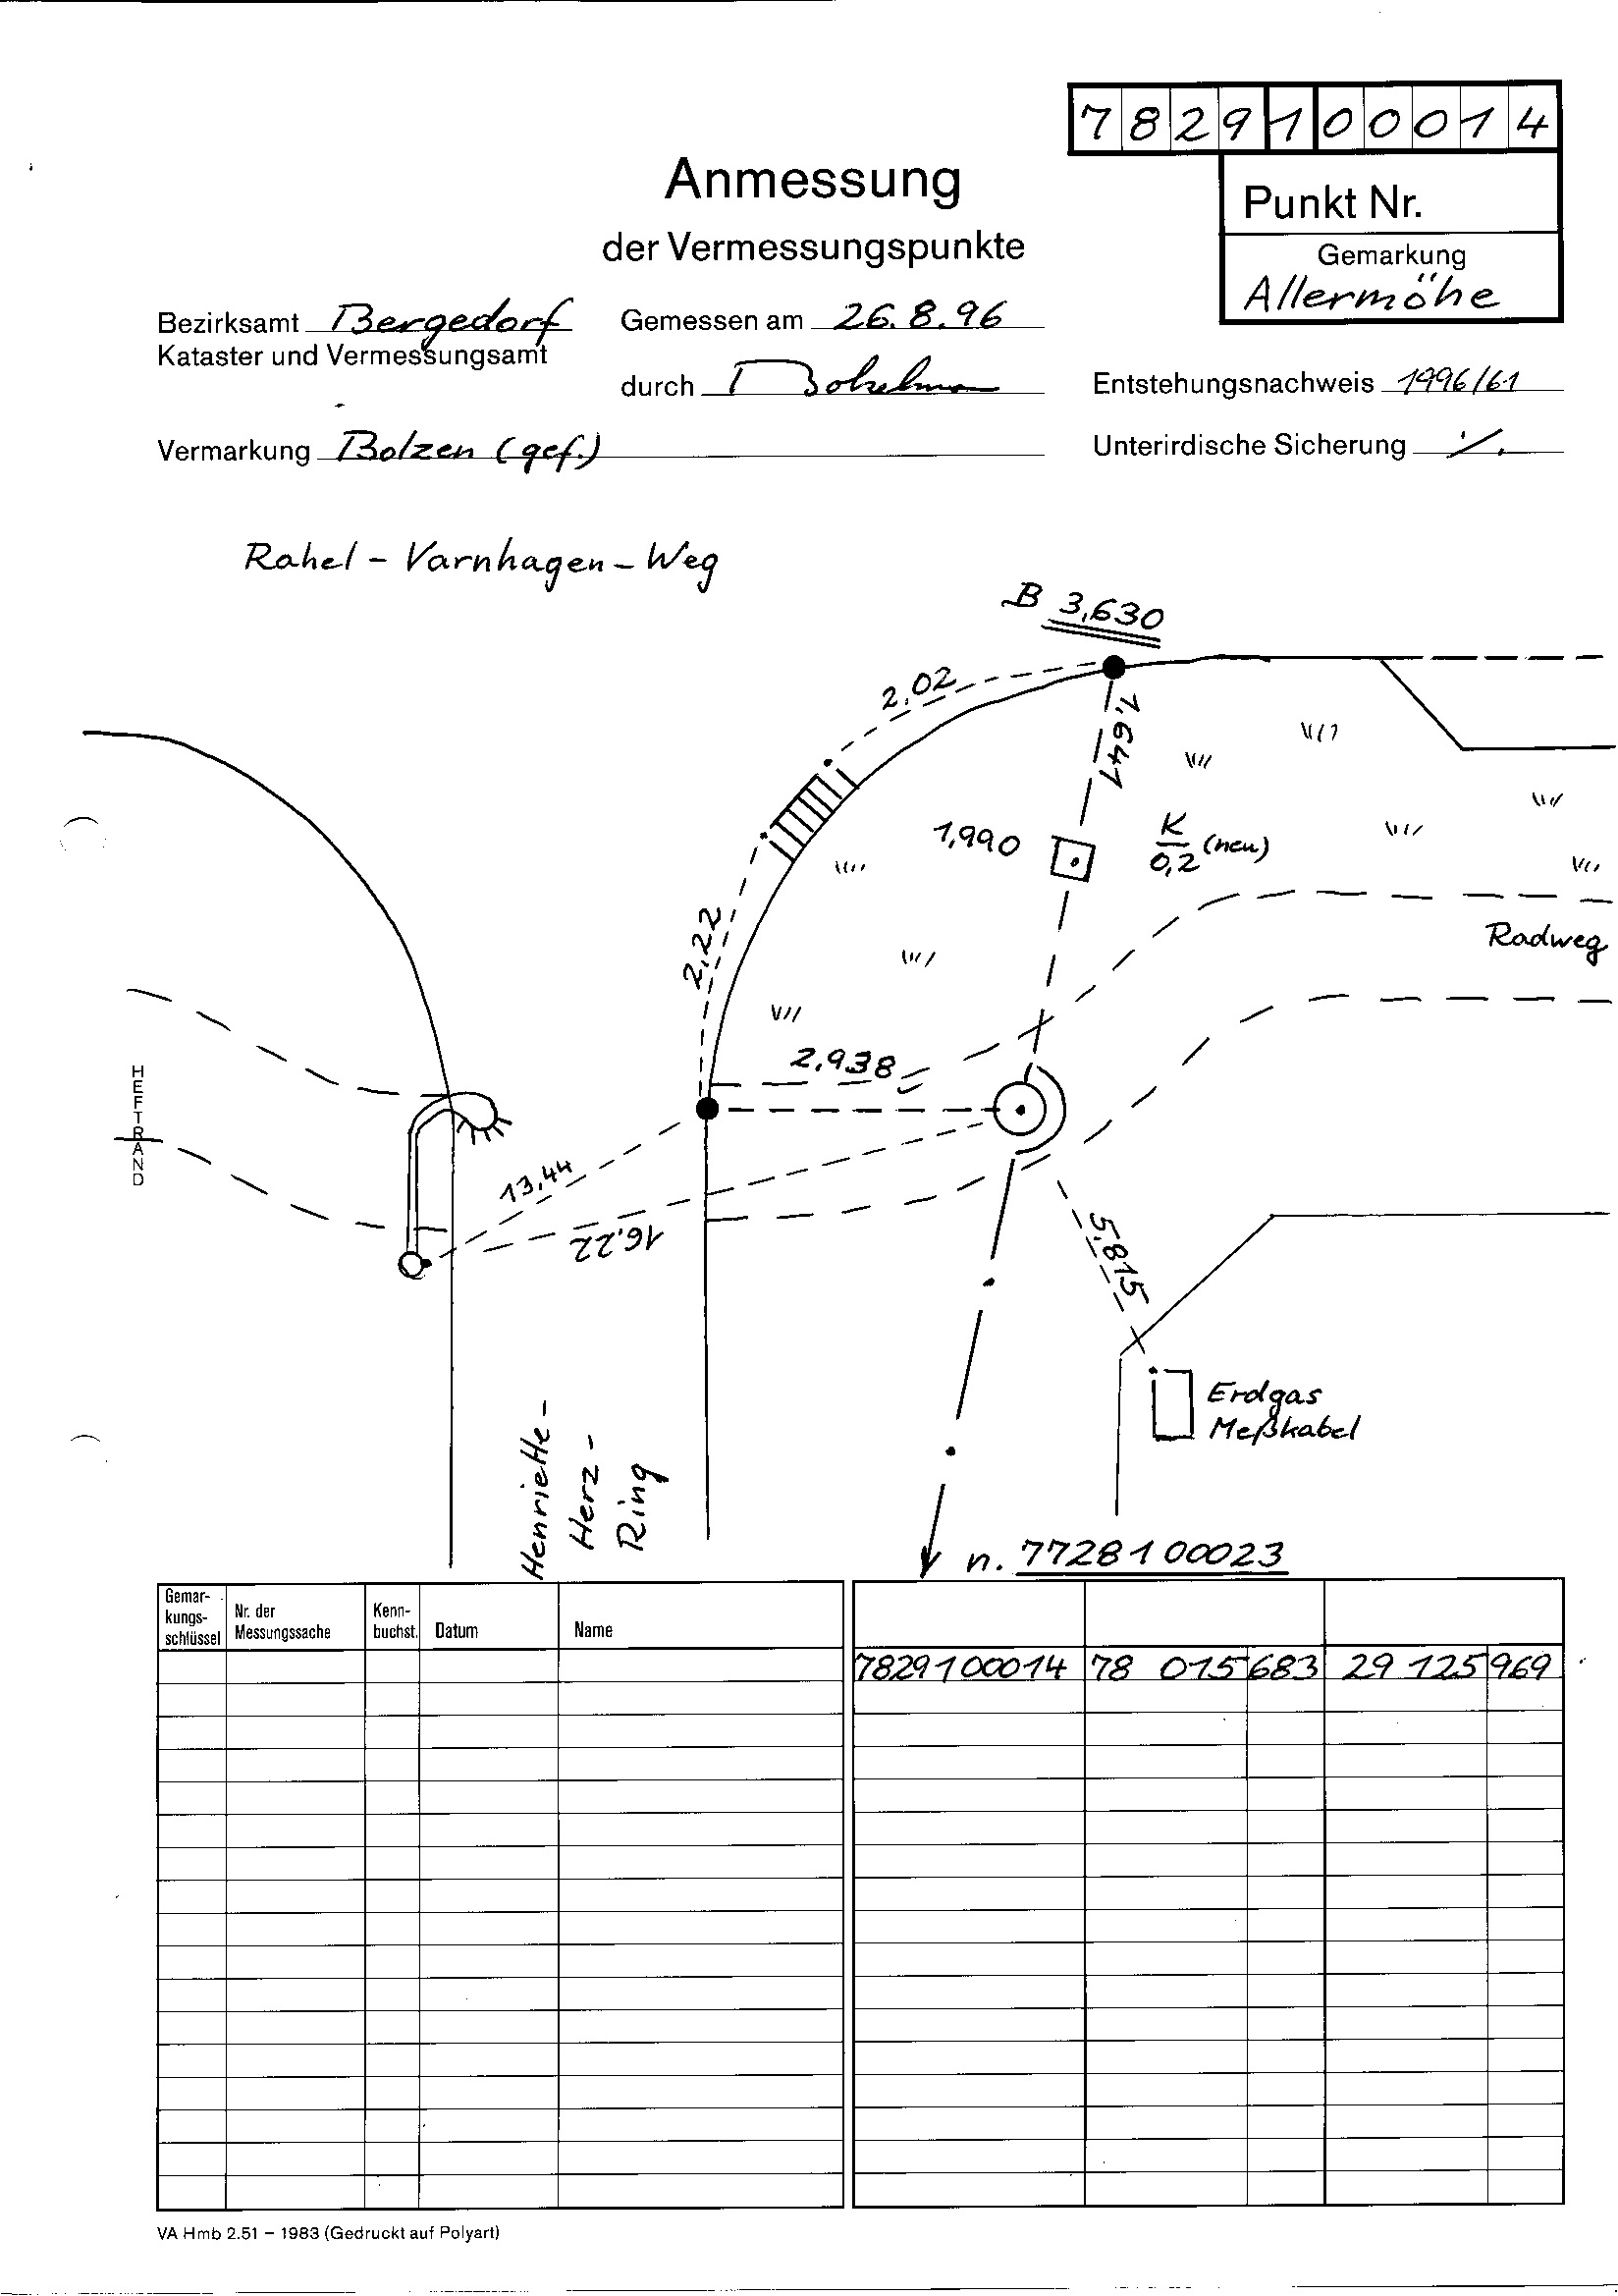 7829100014
Anmessung
der Vermessungspunkte
Punkt Nr.
Gemarkung
Allermöhe
Bezirksamt Bergedorf
Kataster und Vermessungsamt
Gemessen am 26.8.96
durch
Entstehungsnachweis 1996/61
Vermarkung Bolzen (gef.)
Unterirdische Sicherung ·/.
Rahel-Varnhagen-Weg
B 3,630
2,02
1,641
1,990
K
0,2 (neu)
2,22
Radweg
2,938
HEFTRAND
13,44
16,22
5,815
Erdgas
Meßkabel
Henriette-
Herz-
Ring
n. 7728100023
Gemar-
kungs-
schlüssel
Nr. der
Messungssache
Kenn-
buchst.
Datum
Name
7829100014 78 015 683 29 125 969
VA Hmb 2.51 – 1983 (Gedruckt auf Polyart)